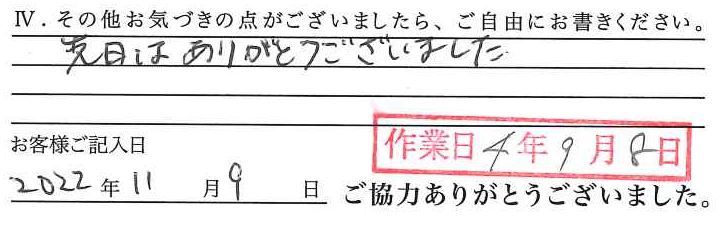 Ⅳ．その他お気づきの点がございましたら、ご自由にお書きください。
先日はありがとうございました
お客様ご記入日
作業日4年9月8日
2022年11月9日
ご協力ありがとうございました。